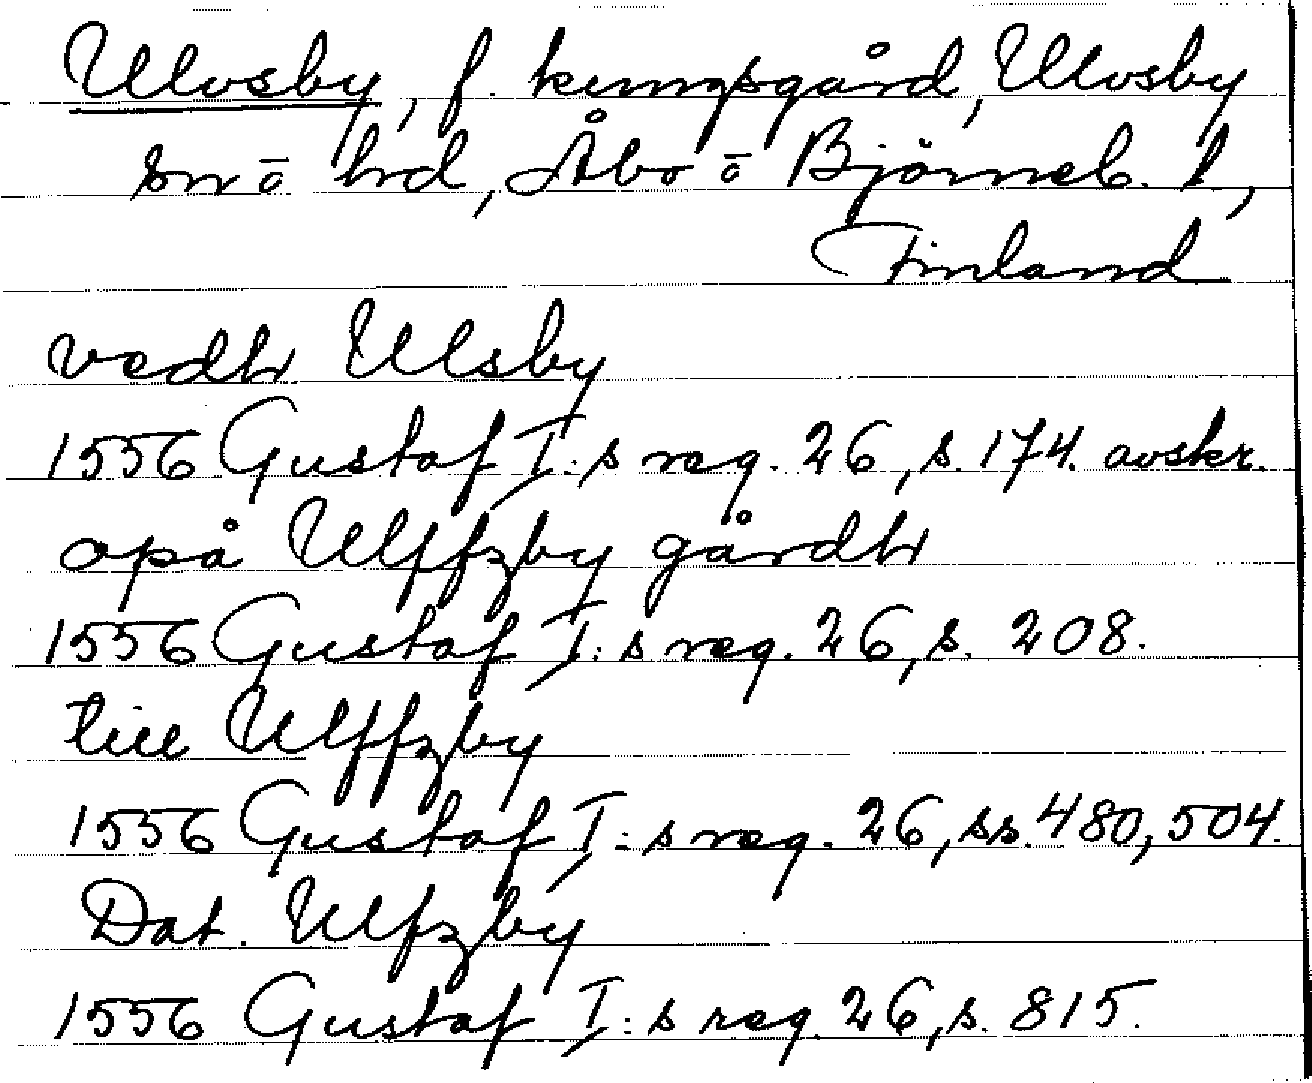 Ulvsby, f. kungsgård, Ulvsby
sn ō hd, Åbo ō Björneb. l,
Finland
vedh Ulsby
1556 Gustaf I:s reg. 26, s. 174. avskr.
opå Ulffzby gårdh
1556 Gustaf I:s reg. 26, s. 208.
till Ulffzby
1556 Gustaf I:s reg. 26, ss. 480, 504.
Dat. Ulfzby
1556 Gustaf I:s reg. 26, s. 815.